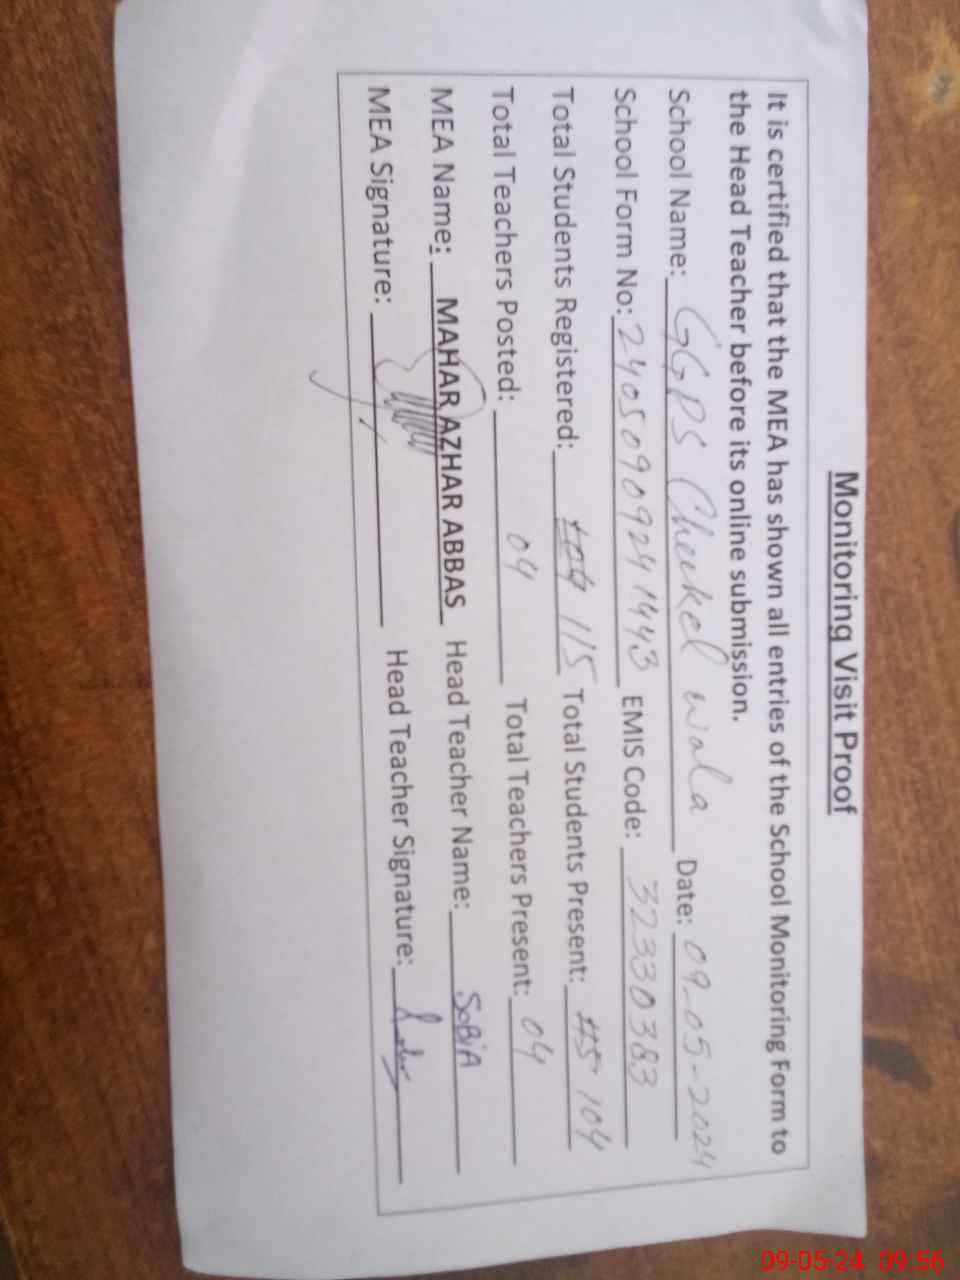 Monitoring Visit Proof
It is certified that the MEA has shown all entries of the School Monitoring Form to
the Head Teacher before its online submission.
School Name: GGPS Cheekel wala Date: 09-05-2024
School Form No: 24050909241443 EMIS Code: 32330383
Total Students Registered: 104 115 Total Students Present: 115 104
Total Teachers Posted: 04 Total Teachers Present: 04
MEA Name: MAHAR AZHAR ABBAS Head Teacher Name: SoBiA
MEA Signature: Head Teacher Signature:
09-05-24 09:56